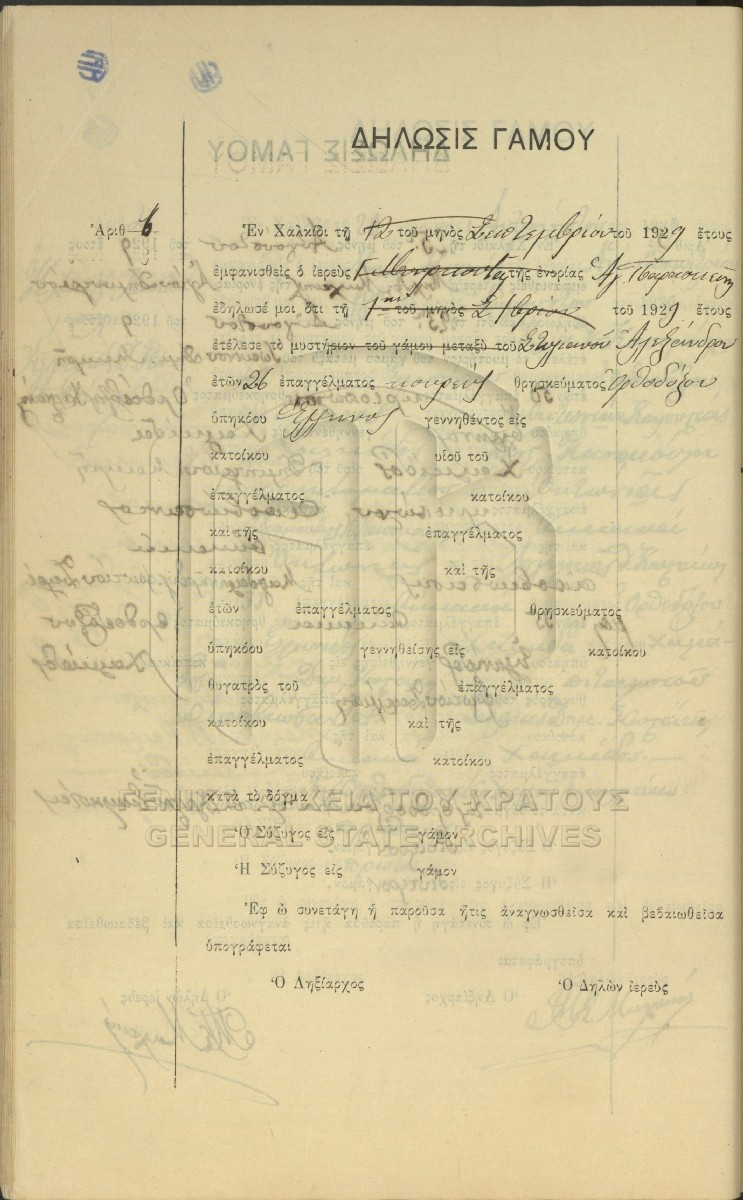 ΔΗΛΩΣΙΣ ΓΑΜΟΥ
Ἀριθ 6
Ἐν Χαλκίδι τῇ 12 τοῦ μηνὸς Σεπτεμβρίου τοῦ 1929 ἔτους
ἐμφανισθεὶς ὁ ἱερεὺς τῆς ἐνορίας Ἁγ. Παρασκευῆς
ἐδήλωσέ μοι ὅτι τῇ 1ην τοῦ μηνὸς 7/βρίου τοῦ 1929 ἔτους
ἐτέλεσε τὸ μυστήριον τοῦ γάμου μεταξὺ τοῦ Στυλιανοῦ Ἀλεξάνδρου
ἐτῶν 26 ἐπαγγέλματος κουρεὺς θρησκεύματος Ὀρθοδόξου
ὑπηκόου Ἕλληνος γεννηθέντος εἰς
κατοίκου υἱοῦ τοῦ
ἐπαγγέλματος κατοίκου
καὶ τῆς ἐπαγγέλματος
κατοίκου καὶ τῆς
ἐτῶν ἐπαγγέλματος θρησκεύματος
ὑπηκόου γεννηθείσης εἰς κατοίκου
θυγατρὸς τοῦ ἐπαγγέλματος
κατοίκου καὶ τῆς
ἐπαγγέλματος κατοίκου
κατὰ τὸ δόγμα
ΓΕΝΙΚΑ ΑΡΧΕΙΑ ΤΟΥ ΚΡΑΤΟΥΣ
GENERAL STATE ARCHIVES
Ὁ Σύζυγος εἰς γάμον
Ἡ Σύζυγος εἰς γάμον
Ἐφ ὡ συνετάγη ἡ παροῦσα ἥτις ἀναγνωσθεῖσα καὶ βεβαιωθεῖσα
ὑπογράφεται
Ὁ Ληξίαρχος Ὁ Δηλῶν ἱερεὺς